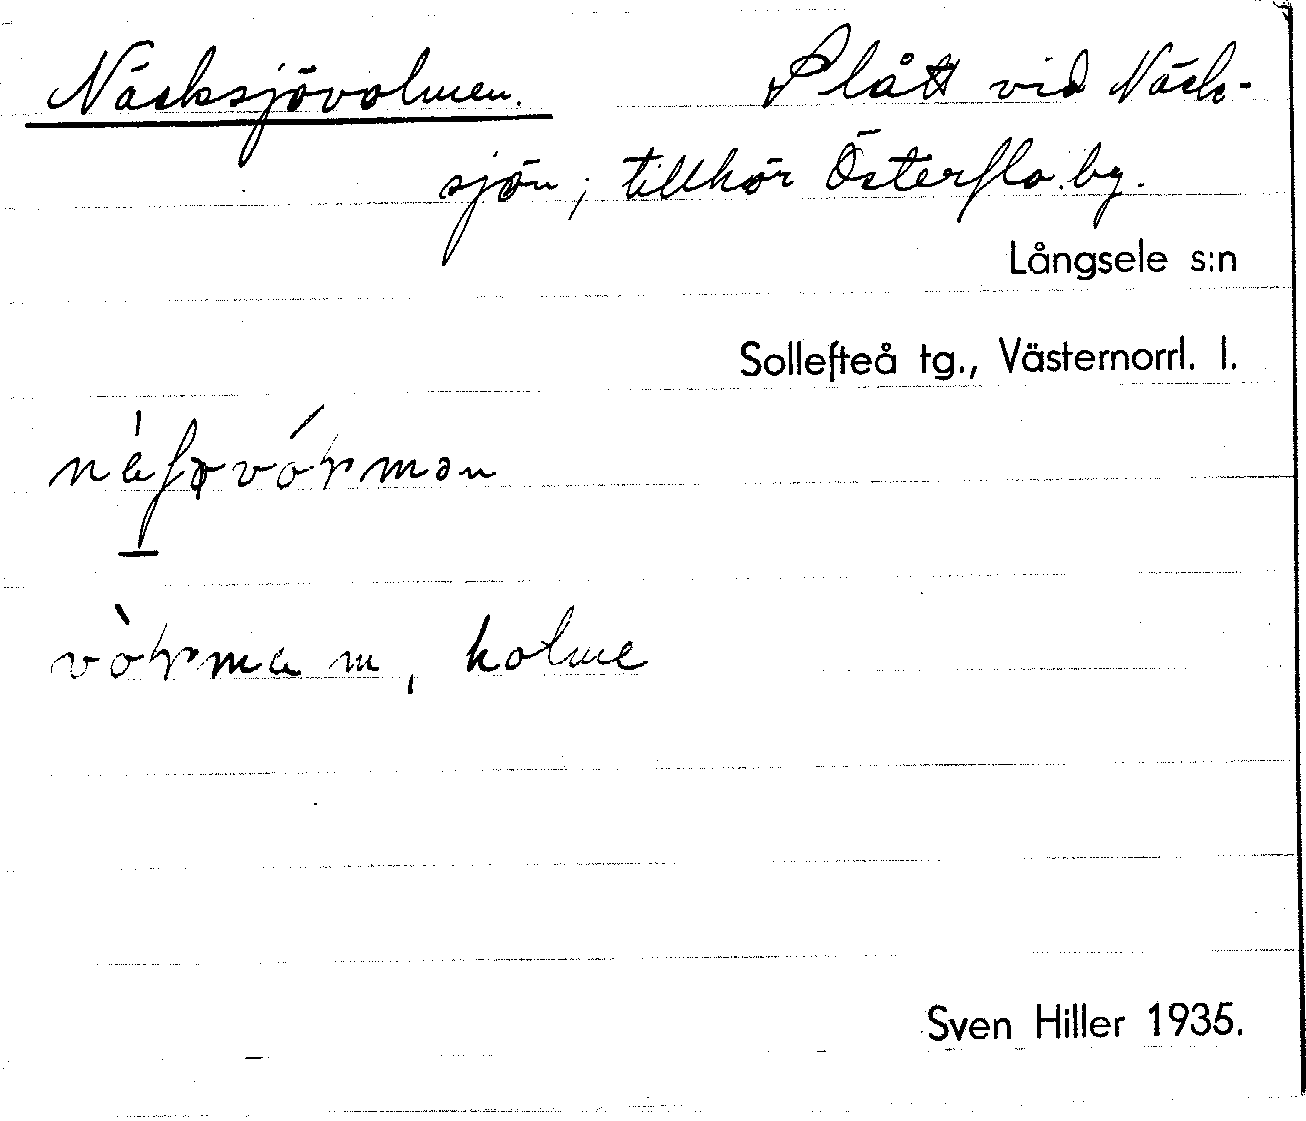 Näcksjövolmen. Slått vid Näck-
sjön; tillhör Österflo by.
Långsele s:n
Sollefteå tg., Västernorrl. l.
m, holme
Sven Hiller 1935.